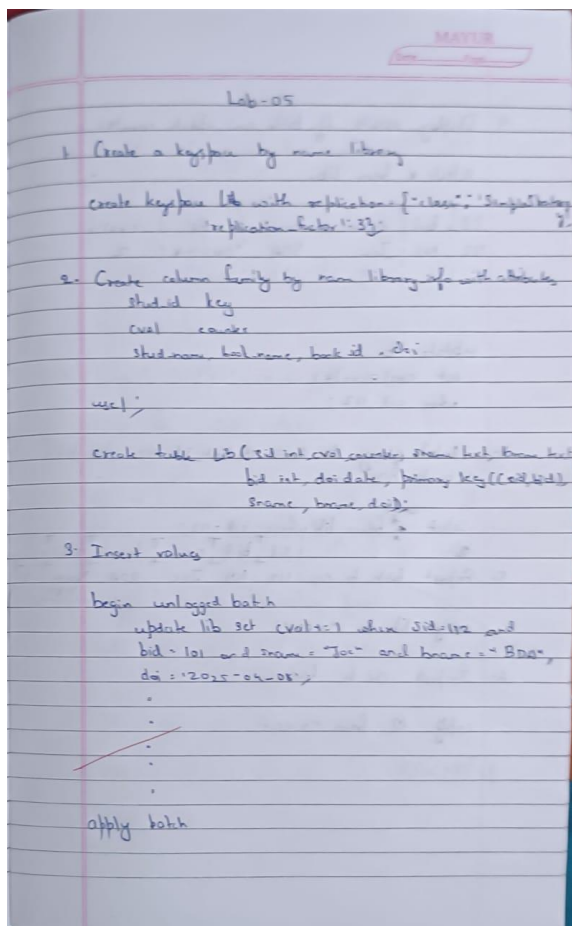 MAYUR
Date Page
Lab-05
1. Create a keyspace by name library
create keyspace lib with replication = {"class":"Simple
'replication_factor':3};
2. Create column family by name library info with attributes
stud_id key
cval counter
stud_name, book_name, book_id, doi
use l;
create table lib (sid int, cval counter, sname text, bname text
bid int, doi date, primary key((sid, bid),
sname, bname, doi));
3. Insert values
begin unlogged batch
update lib set cval+=1 where sid=112 and
bid = 101 and sname = "Joe" and bname = "BDA",
doi = '2025-04-08';
apply batch